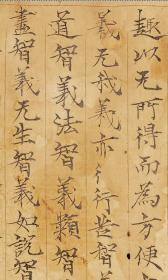 趣以无所得而為方便
義无我義亦尒行苦智
道智義法智義類智
盡智義无生智義如說智